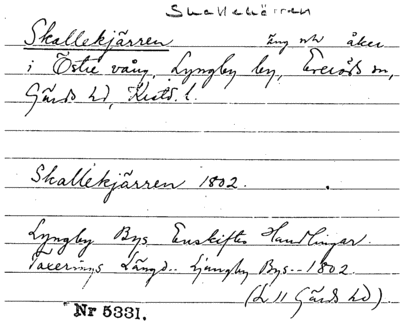 Skallekärren
Skallekjärren äng och åker
i Östre vång, Lyngby by, Everöds sn,
Gärds hd, Krist. l.
Skallekjärren 1802.
Lyngby Bys Enskiftes Handlingar.
Taxerings Längd.. Ljungby Bys.. 1802.
(L 11 Gärds hd).
Nr 5331.